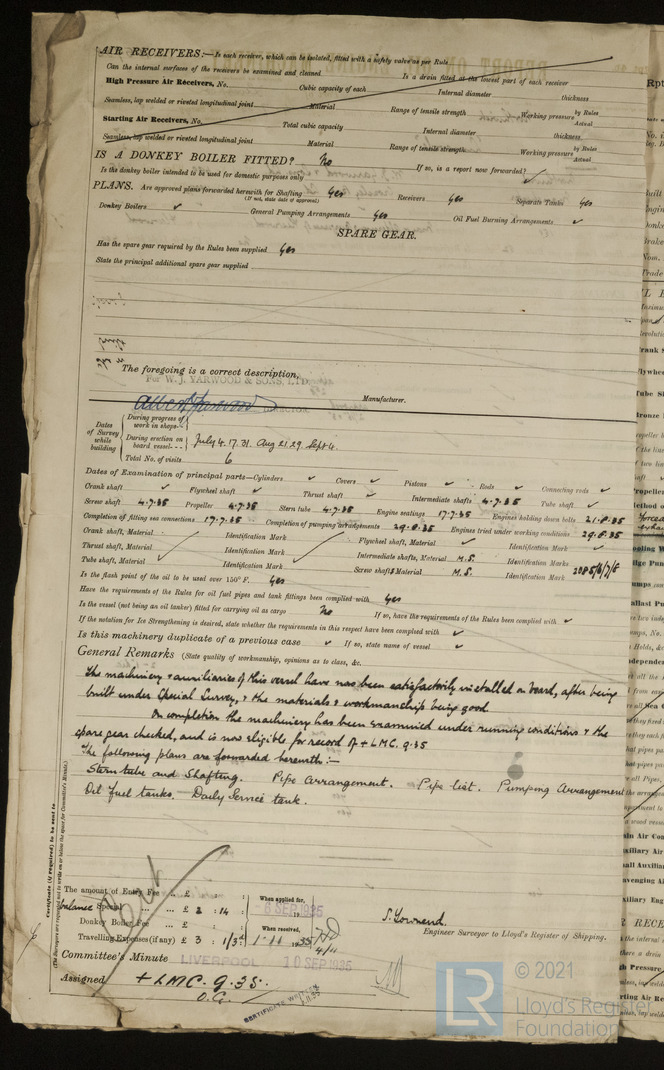 AIR RECEIVERS:—Is each receiver, which can be isolated, fitted with a safety valve as per Rule
Can the internal surfaces of the receivers be examined and cleaned Is a drain fitted at the lowest part of each receiver
High Pressure Air Receivers, No. Cubic capacity of each Internal diameter thickness
Seamless, lap welded or riveted longitudinal joint Material Range of tensile strength Working pressure by Rules Actual
Starting Air Receivers, No. Total cubic capacity Internal diameter thickness
Seamless, lap welded or riveted longitudinal joint Material Range of tensile strength Working pressure by Rules Actual
IS A DONKEY BOILER FITTED? No If so, is a report now forwarded? ✓
Is the donkey boiler intended to be used for domestic purposes only
PLANS. Are approved plans forwarded herewith for Shafting Yes Receivers Yes Separate Tanks Yes
(If not, state date of approval)
Donkey Boilers ✓ General Pumping Arrangements Yes Oil Fuel Burning Arrangements ✓
SPARE GEAR.
Has the spare gear required by the Rules been supplied Yes
State the principal additional spare gear supplied
The foregoing is a correct description,
For W. J. YARWOOD & SONS, LTD.
DIRECTOR. Manufacturer.
Dates of Survey while building
During progress of work in shops
During erection on board vessel July 4. 17. 31. Aug 21. 29. Sept 4.
Total No. of visits 6
Dates of Examination of principal parts—Cylinders ✓ Covers ✓ Pistons ✓ Rods ✓ Connecting rods ✓
Crank shaft ✓ Flywheel shaft ✓ Thrust shaft ✓ Intermediate shafts 4.7.35 Tube shaft ✓
Screw shaft 4.7.35 Propeller 4.7.35 Stern tube 4.7.35 Engine seatings 17.7.35 Engines holding down bolts 21.8.35
Completion of fitting sea connections 17.7.35 Completion of pumping arrangements 29.8.35 Engines tried under working conditions 29.8.35
Crank shaft, Material Identification Mark Flywheel shaft, Material ✓ Identification Mark ✓
Thrust shaft, Material Identification Mark Intermediate shafts, Material M.S. Identification Marks
Tube shaft, Material Identification Mark Screw shaft, Material M.S. Identification Mark
Is the flash point of the oil to be used over 150° F. Yes
Have the requirements of the Rules for oil fuel pipes and tank fittings been complied with Yes
Is the vessel (not being an oil tanker) fitted for carrying oil as cargo No If so, have the requirements of the Rules been complied with ✓
If the notation for Ice Strengthening is desired, state whether the requirements in this respect have been complied with ✓
Is this machinery duplicate of a previous case ✓ If so, state name of vessel ✓
General Remarks (State quality of workmanship, opinions as to class, &c.
The machinery & auxiliaries of this vessel have now been satisfactorily installed on board, after being
built under Special Survey, & the materials & workmanship being good
On completion the machinery has been examined under running conditions & the
spare gear checked, and is now eligible for record of + LMC. 9.35
The following plans are forwarded herewith:—
Stern tube and Shafting. Pipe arrangement. Pipe list. Pumping Arrangement
Oil fuel tanks. Daily Service tank.
Certificate (if required) to be sent to
(The Surveyors are requested not to write on or below the space for Committee's Minute.)
The amount of Entry Fee £ : :
balance Special £ 2 : 14 :
Donkey Boiler Fee £ : :
Travelling Expenses (if any) £ 3 : 1/3
When applied for,
8 SEP 1935
When received,
1.11 1935
S. Townend.
Engineer Surveyor to Lloyd's Register of Shipping.
Committee's Minute LIVERPOOL 10 SEP 1935
Assigned + LMC. 9.35.
O.G.
CERTIFICATE WRITTEN
LR © 2021
Lloyd's Register
Foundation